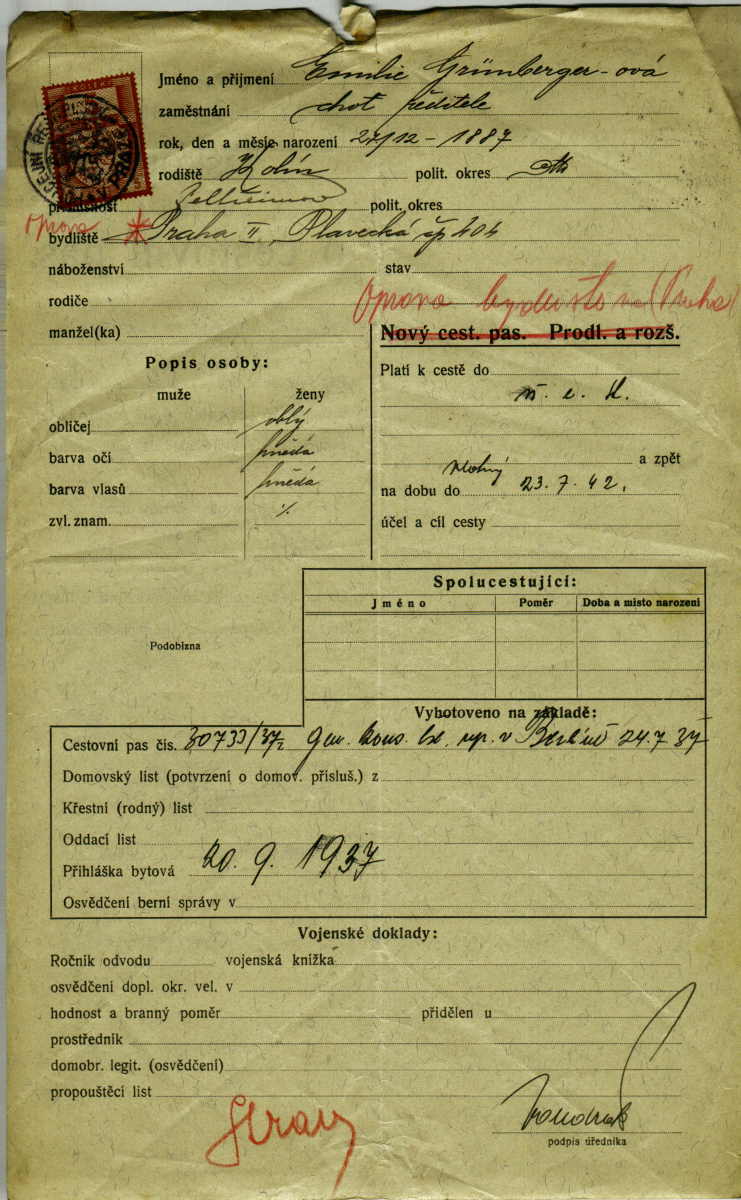 Jméno a příjmení Emilie Grünberger-ová
zaměstnání choť ředitele
rok, den a měsíc narození 27/12 - 1887
rodiště Kolín polit. okres
příslušnost polit. okres
Oprava
bydliště Praha II, Plavecká čp 404
náboženství stav
rodiče Oprava bydliště na (Praha)
manžel(ka) Nový cest. pas. Prodl. a rozš.
Popis osoby:
muže ženy
obličej oblý
barva očí hnědá
barva vlasů hnědá
zvl. znam. %
Platí k cestě do
a zpět
na dobu do 23. 7. 42.
účel a cíl cesty
Podobizna
Spolucestující:
Jméno Poměr Doba a místo narození
Vyhotoveno na základě:
Cestovní pas čís. 30733/37 Gen. kons. v Berlíně 24.7 37
Domovský list (potvrzení o domov. přísluš.) z
Křestní (rodný) list
Oddací list
Přihláška bytová 20. 9. 1937
Osvědčení berní správy v
Vojenské doklady:
Ročník odvodu vojenská knížka
osvědčení dopl. okr. vel. v
hodnost a branný poměr přidělen u
prostředník
domobr. legit. (osvědčení)
propouštěcí list
podpis úředníka